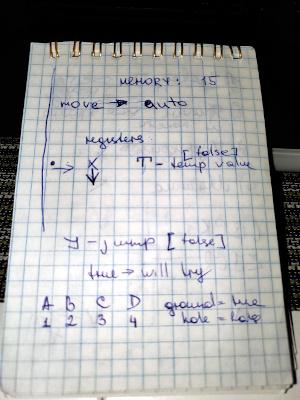 MEMORY: 15
move → auto
registers:
[false]
• → X T - temp value
J - jump [false]
true → will try
A B C D ground = true
1 2 3 4 hole = false